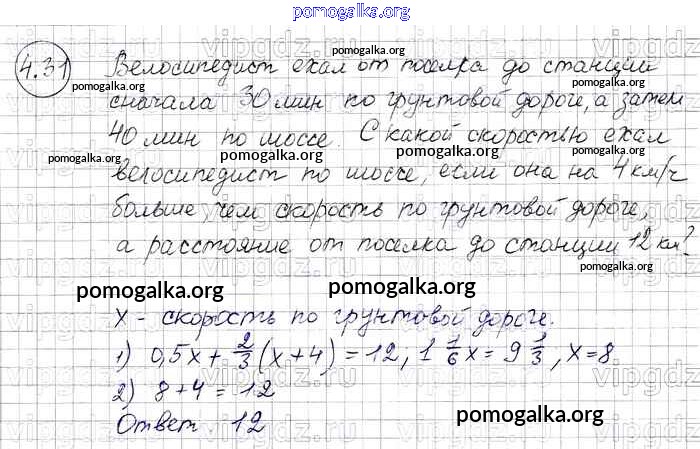 pomogalka.org
4.31 Велосипедист ехал от поселка до станции
сначала 30 мин по грунтовой дороге, а затем
40 мин по шоссе. С какой скоростью ехал
велосипедист по шоссе, если она на 4 км/ч
больше, чем скорость по грунтовой дороге,
а расстояние от поселка до станции 12 км?
pomogalka.org
pomogalka.org
pomogalka.org
pomogalka.org
pomogalka.org
pomogalka.org
pomogalka.org
pomogalka.org
pomogalka.org
pomogalka.org
pomogalka.org
x - скорость по грунтовой дороге.
1) 0,5x + 2/3 (x+4) = 12, 1 1/6 x = 9 1/3, x=8
2) 8+4=12
Ответ. 12
pomogalka.org